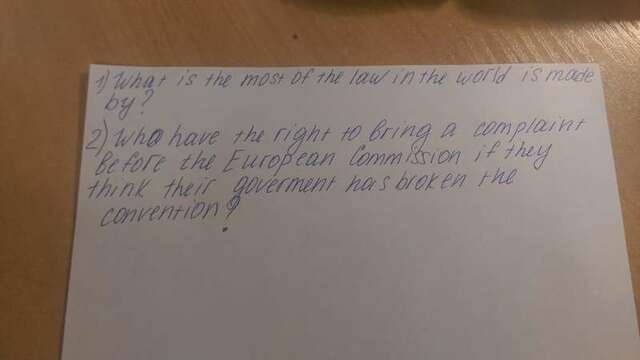 1) What is the most of the law in the world is made
by?
2) Who have the right to bring a complaint
before the European Commission if they
think their goverment has broken the
convention?